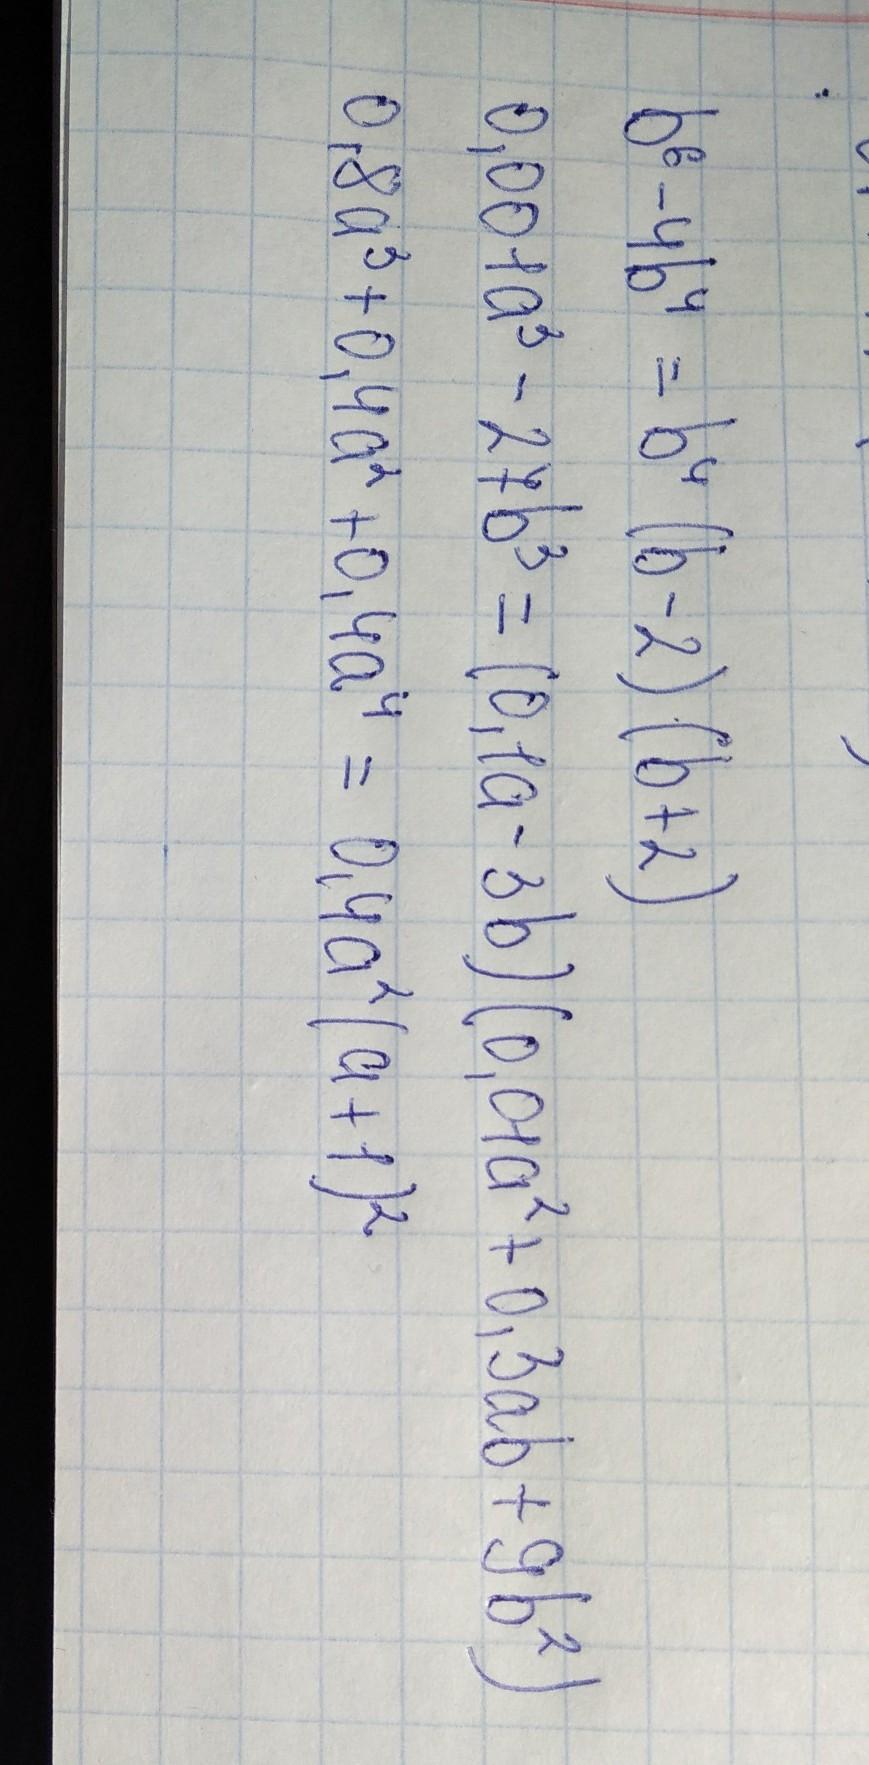 b⁶ - 4b⁴ = b⁴ (b - 2) (b + 2)
0,001a³ - 27b³ = (0,1a - 3b) (0,01a² + 0,3ab + 9b²)
0,8a³ + 0,4a² + 0,4a⁴ = 0,4a² (a + 1)²